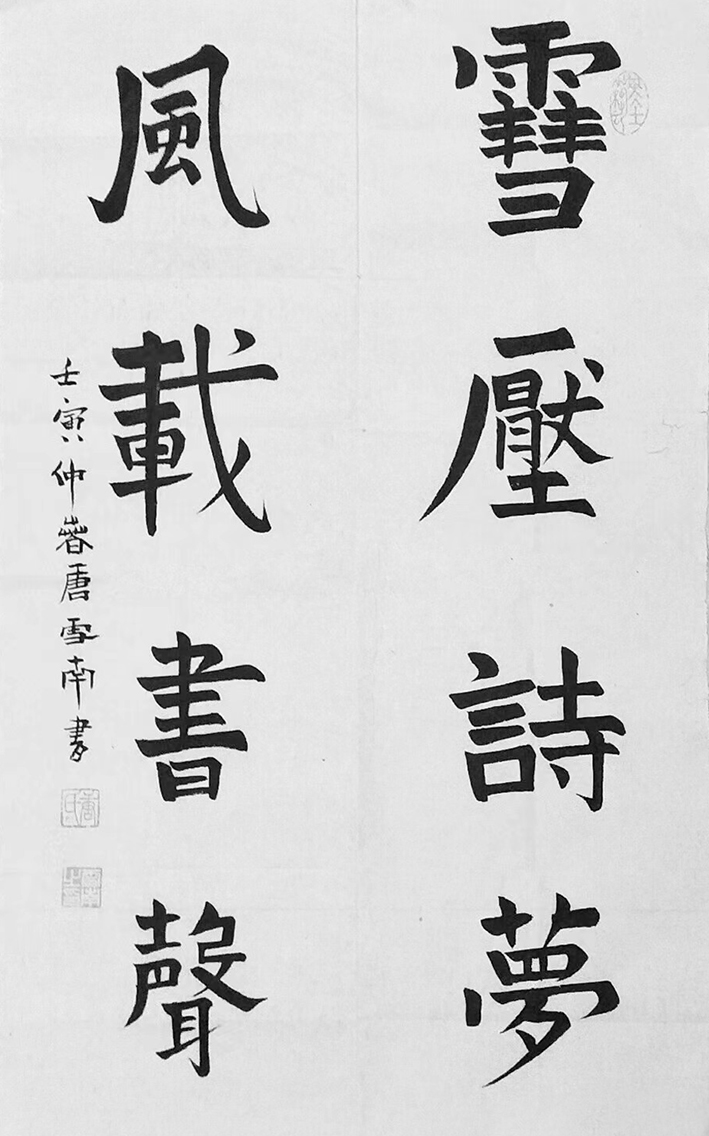 雪壓詩夢
風載書聲
壬寅仲春唐雪南書
唐氏